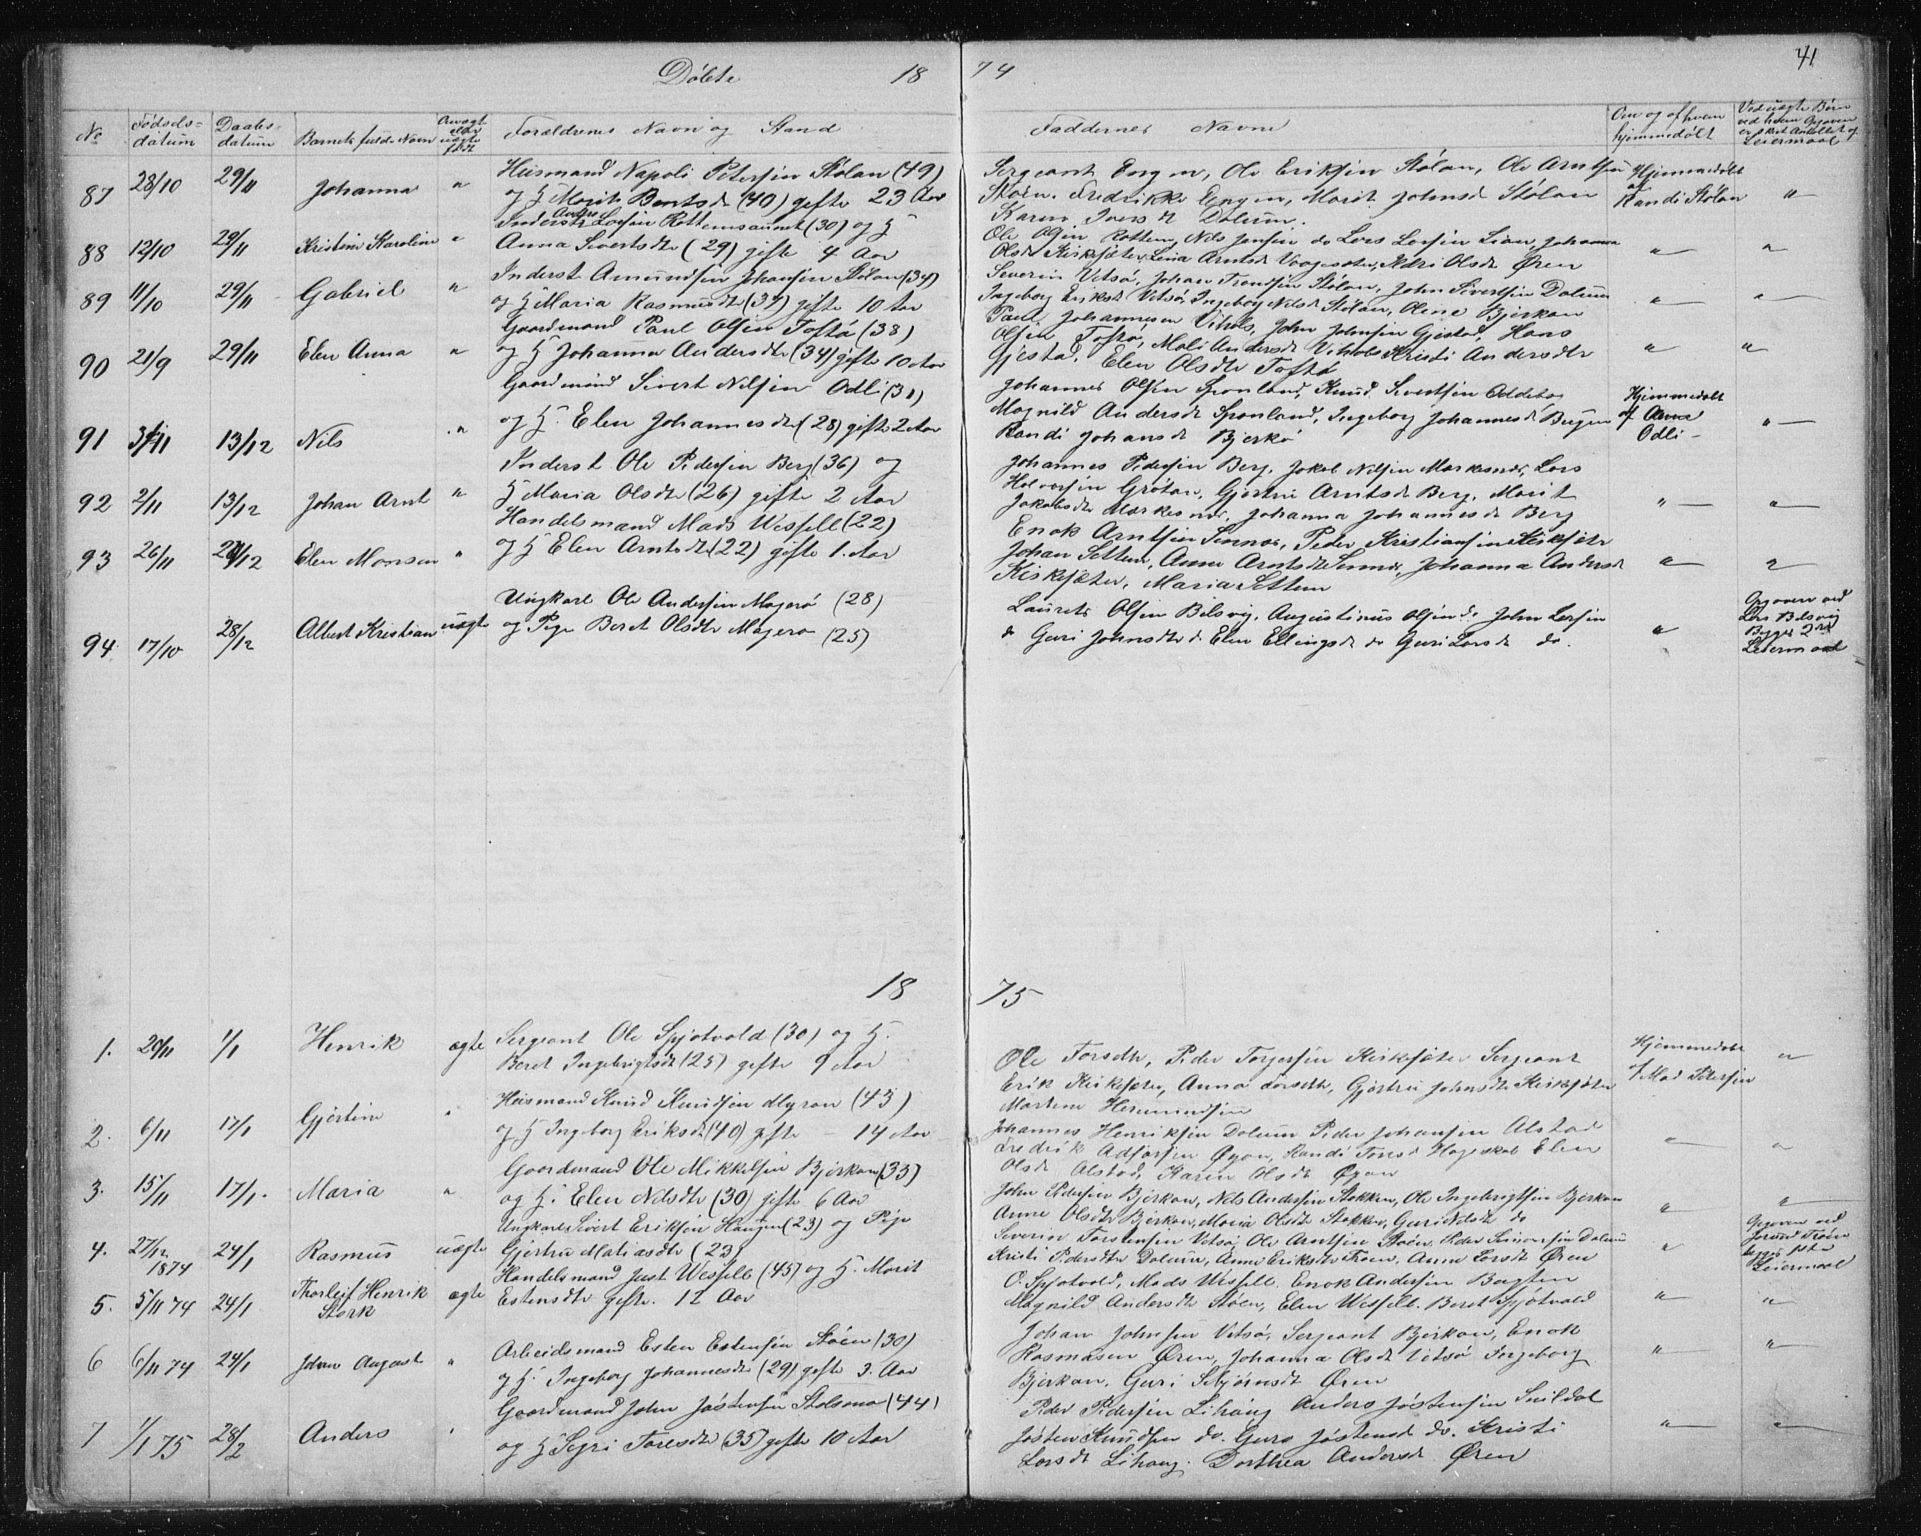 41
Döbte 18 74
No
Fødsels-
datum
Daabs-
datum
Barnets fulde Navn
Om ægte
eller
uægte
født
Forældrenes Navn og Stand
Faddernes Navne
Om og af hvem
hjemmedøbt
Ved uægte Børn
ved hvem Opgaven
er sket Antallet af
Leiermaal
87 28/10 29/11 Johanna "
Huusmand Napoli Petersen Stölan (49)
og H Marit Bentsdt (40) gifte 23 Aar
Sergeant Engen, Ole Eriksen Stölan, Ole Arntsen
Stöen. Fredrikke Engen, Marit Johnsd Stölan
Karen Iversdt Dalum.
Hjemmedøbt
af
Randi Stölan
"
88 12/10 29/11 Kristine Karoline "
Inderst Anders Larsen Rottemsaunet (30) og H
Anna Sivertsdt (29) gifte 4 Aar
Ole Olsen Rottem, Nils Jensen do Lars Larsen Lian, Johanna
Olsdt Kirksæter, Lina Arntsdt Vaagesæter, Olsdt Ören
" "
89 11/10 29/11 Gabriel "
Inderst Amundsen Johansen Stölan (34)
og H Maria Rasmusdt (39) gifte 10 Aar
Severin Vitsö, Johan Trondsen Stölan, John Sivertsen Dalum
Ingeborg Eriksdt Vitsö, Ingeborg Nilsd Stölan, Olene Bjerkan
" "
90 21/9 29/11 Elen Anna "
Gaardmand Paul Olsen Toftö (38)
og H Johanna Andersdtr (34) gifte 10 Aar
Paul Johannesen Vihals, John Johnsen Gjestad, Hans
Olsen Toftö, Mali Andersdt Vihals Kristi Andersdtr
Gjestad, Elen Olsdtr Toftö
" "
91 3/11 13/12 Nils "
Gaardmand Sivert Nilsen Odli (31)
og H. Elen Johannesdt (28) gifte 2 Aar
Johannes Olsen Sponland, Knud Sivertsen
Magnild Andersdt Sponland, Ingeborg Johannesdt Bugen
Randi Johansdt Bjerkö
Hjemmedøbt
af Anne
Odli -
"
92 2/11 13/12 Johan Arnt "
Inderst Ole Pedersen Berg (36) og
H Maria Olsdtr (26) gifte 2 Aar
Johannes Pedersen Berg, Jakob Nilsen Markesnes, Lars
Halvorsen Grötan, Gjertru Arntsdt Berg, Marit
Jakobsdt Markesnes, Johanna Johannesdt Berg
" "
93 26/11 28/12 Elen Monsen "
Handelsmand Mads Wessell (22)
og H Elen Arntsdtr (22) gifte 1. Aar
Enok Arntsen Sinnes, Peder Kristiansen Kirksæter
Johan Settem, Anne Arntsdt Sinnes, Johanna Andersd
Kirksæter, Maria Settem
" "
94 17/10 28/12 Albert Kristian uægte
Ungkarl Ole Andersen Magerö (28)
og Pige Beret Olsdtr Magerö (25)
Laurits Olsen Belsvig, Augustinus Olsen do John Larsen
do Guri Johnsdtr do Elen Ellingsdt do Guri Larsdt do.
"
Opgaven ved
Lars Belsvig
Begges 2det
Leiermaal
18 75
1. 20/11 1/1 Henrik ægte
Sergeant Ole Spjotvold (30) og H.
Beret Ingebrigtsdt (25) gifte 9 Aar
Ole Forseth, Peder Torgersen Kirksæter Sergeant
Erik Kirksæter, Anna Forseth, Gjertru Johnsdtr Kirksæter
Martine
Hjemmedøbt
af Mad Petersen
"
2. 6/11 17/1 Gjertine "
Huusmand Knud Knudsen Myran (43)
og H Ingeborg Eriksdt (40) gifte 14 Aar
Johannes Henriksen Dalum Peder Johansen Alstad
Fredrik Adfarsen Öyan, Randi Toresd Hageskal Elen
Olsdt Alstad, Karen Olsdt Öyan
" "
3. 15/11 17/1. Maria "
Gaardmand Ole Mikkelsen Bjerkan (33)
og H. Elen Nilsdtr (30) gifte 6 Aar
John Pedersen Bjerkan, Nils Andersen Stokken, Ole Ingebrigtsen Bjerkan
Anne Olsdtr Bjerkan, Maria Olsdt Stokken, Guri Nilsdt do
" "
4. 27/12 1874 24/1 Rasmus uægte
Ungkarl Sivert Eriksen Haugen (23) og Pige
Gjertru Matiasdtr (23)
Severin Torstensen Vitsö, Ole Arntsen Stöen, Peder Simonsen Dalum
Kristi Pedersdtr Dalum, Anne Eriksdtr Troen, Anne Larsdt Ören
"
Opgaven ved
Troen
begges 1ste
Leiermaal
5. 5/11 74 24/1 Thorleif Henrik
Stork ægte
Handelsmand Just Wessell (45) og H. Marit
Estensdtr gifte. 12 Aar
O. Spjotvold, Mads Wessell. Enok Andersen Bagten
Magnild Andersdtr Stöen, Elen Wessell. Beret Spjötvold
" "
6 6/11 74 24/1 Johan August "
Arbeidsmand Esten Estensen Stöen (30)
og H. Ingeborg Johannesdt (29) gifte 3. Aar
Johan Johnsen Vitsö, Sergeant Bjerkan, Enok
Rasmusen Ören, Johanna Olsdt Vitsö Ingeborg
Bjerkan, Guri Ören
" "
7 1/1 75 28/2 Anders "
Gaardmand John Jöstensen Stolsmo (44)
og H Segri Toresdtr (35) gifte 10 Aar
Peder Pedersen Lihaug Anders Jöstensen Snildal
Jösten Knudsen do. Guro Jöstensd do. Kristi
Larsdt Lihaug. Dorthea Andersdt Ören
" "